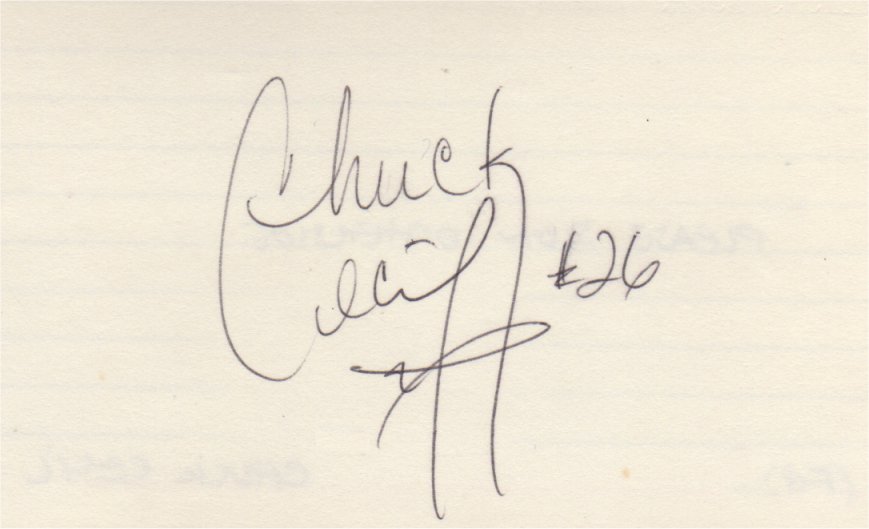 Chuck
Cecil #26